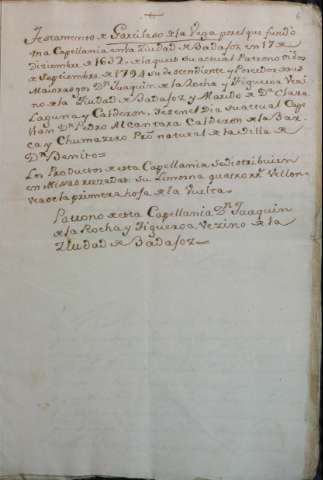 6
Testamento de Garcilaso de la Vega por el que fundó
una Capellania en la Ziudad de Badajoz en 17 de
Diziembre de 1632, de la que es su actual Patrono
de Septiembre de 1794 su descendiente y Poseedor de
Maiorazgos Dn. Joaquin de la Rocha y Figueroa Vezi
no de la Ziudad de Badajoz y Marido de Da. Clara
Laguna y Calderon, y es en el dia su actual Cape
llan Dn. Pedro Alcantara Calderon de la Bar
ca y Chumazero Pro. natural de la Villa de
Dn. Benito =
Los Productos de esta Capellania se distribuien
en Missas rezadas su limosna quatro rs. Vellon
vease la primera hoja de la vuelta =
Patrono de esta Capellania Dn. Joaquin
de la Rocha y Figueroa Vezino de la
Ziudad de Badajoz =